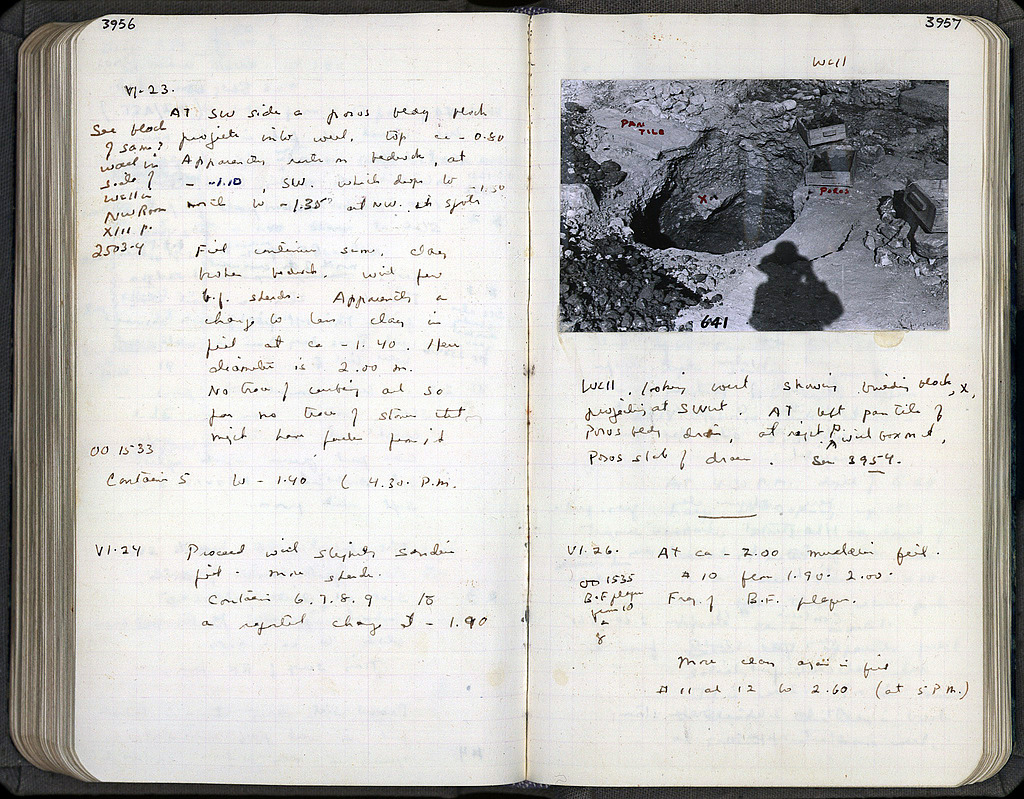 3956
VI-23.
AT SW side a poros block
projects into well, top ca -0.80
Apparently rests on bedrock, at
-1.10, SW. which drops to -1.50
north to -1.35 at NW.
See block
of same?
well in
side of
well in
NW Room
XIII p.
2503-4
Fill contains some clay
broken bedrock. with few
b.f. sherds. Apparently a
change to less clay in
fill at ca -1.40. Here
diameter is 2.00 m.
No trace of curbing and so
far no trace of stones that
might have fallen from it
OO 1533
Contain 5 to -1.40 ( 4.30 P.M.
VI-24 Proceed with slightly sandier
fill. More sherds.
Contain 6.7.8.9 to
a reported change at -1.90
3957
Well
PAN
TILE
X
POROS
641
Well, looking west showing building block, X,
projecting at SW cut. AT left pan tile of
Poros drain, at right, with box on it,
Poros slab of drain. See 3954.
VI-26. AT ca -2.00 muddier fill.
# 10 from 1.90-2.00.
OO 1535
B.F plaque
from 10
Frag. of B.F. plaque.
More clay again in fill
# 11 and 12 to 2.60 (at 5 P.M.)